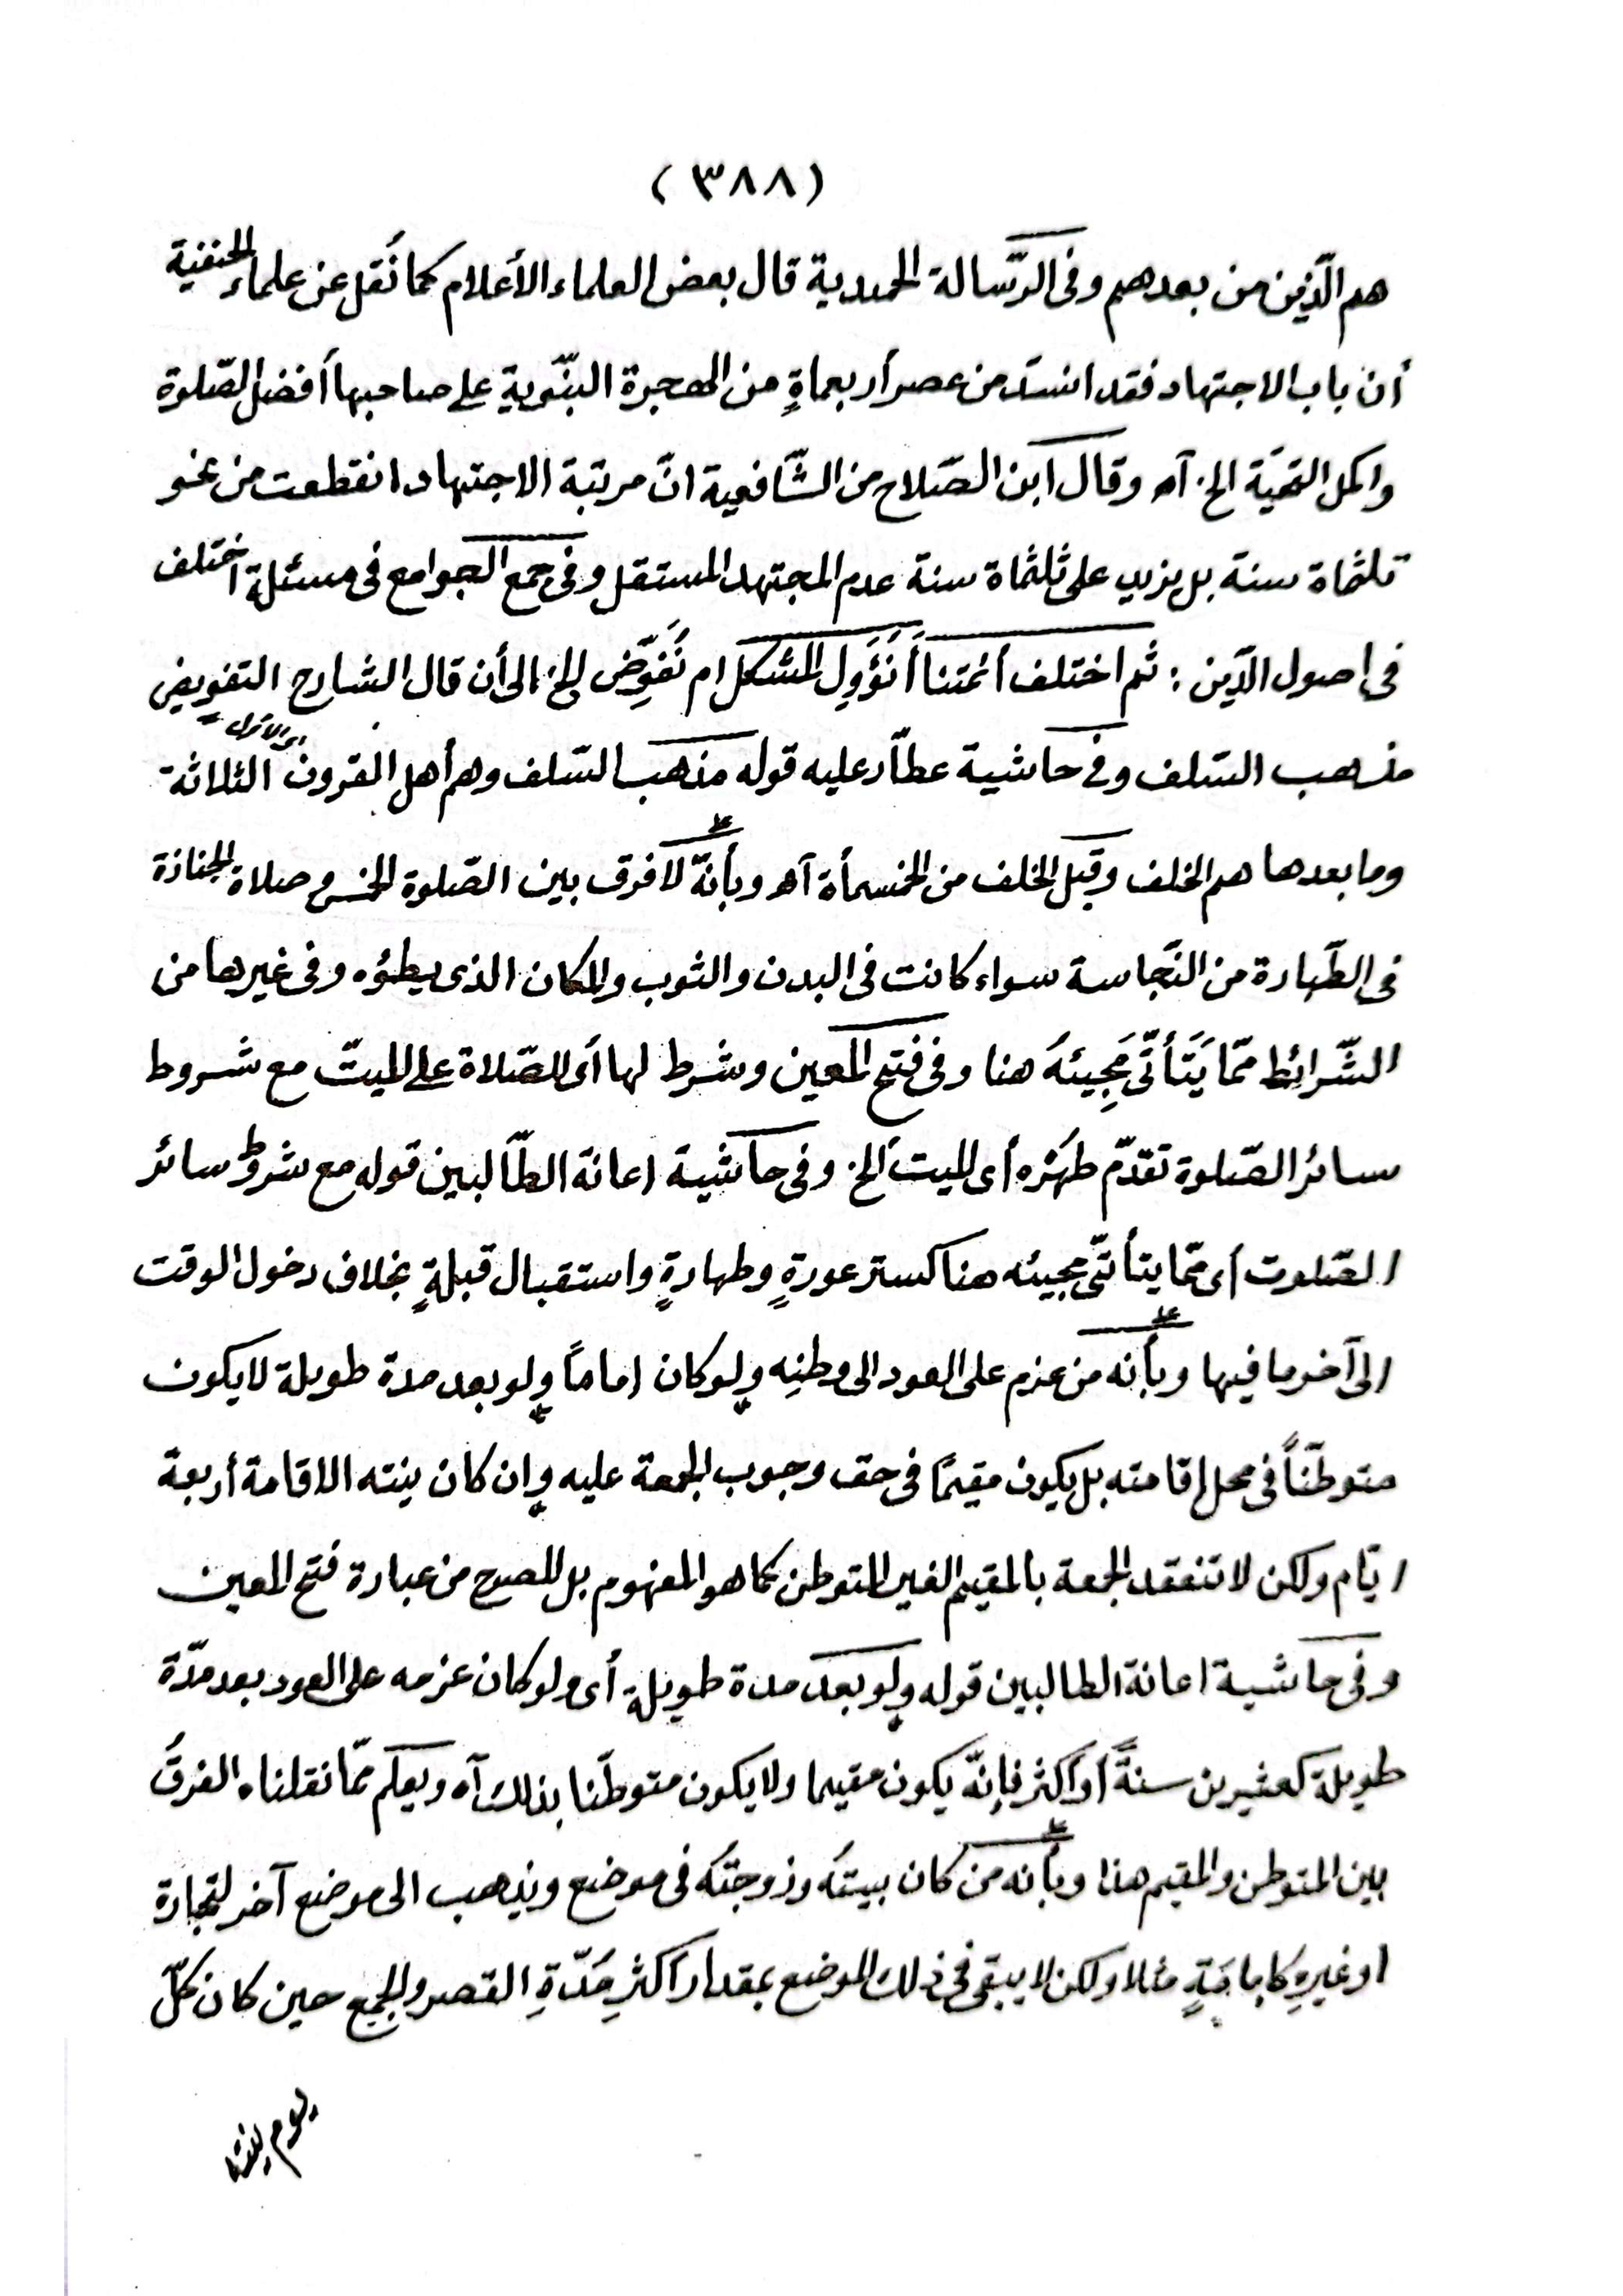 (٣٨٨)
هم الّذين من بعدهم وفى الرّسالة الحميدية قال بعض العلماء الأعلام كما نُقل عن علماء الحنفية
أن باب الاجتهاد فقد انسدّ من عصر أربعماةٍ من الهجرة النبّوية على صاحبها أفضل الصّلوة
واكمل التحيّة الخ آه وقال ابن الصّلاح من الشّافعية انّ مرتبة الاجتهاد انقطعت من نحو
ثلثماة سنة بل يزيد على ثلثماة سنة عدم المجتهد المستقل وفى جمع الجوامع فى مسئلة اختلف
فى اصول الدّين : ثم اختلف أئمتنا أَنُؤَوِّل المشكل ام نُفَوِّض الخ الى أن قال الشارح التفويض
مذهب السّلف وفى حاشية عطّار عليه قوله مذهب السّلف وهم أهل القرون الثلاثة
وما بعدها هم الخلف وقيل الخلف من الخمسمأة آه وبأنّه لا فرق بين الصّلوة الخمس و صلاة الجنازة
فى الطّهارة من النّجاسة سواء كانت فى البدن والثوب والمكان الذى يطؤه وفى غيرها من
الشّرائط ممّا يَتَأتّى مَجِيئهُ هنا وفى فتح المعين وشرط لها أى للصّلاة على الميتّ مع شروط
سائر الصّلوة تقدّم طهرُه أى الميت الخ وفى حاشية اعانة الطّالبين قوله مع شروط سائر
الصّلوت أى ممّا يتأتّى مجيئه هنا كستر عورةٍ وطهارةٍ واستقبال قبلةٍ بخلاف دخول الوقت
الى آخر ما فيها وبأنه من عزم على العود الى وطنِه ولو كان اماماً ولو بعد مدة طويلة لا يكون
متوطّناً فى محل إقامته بل يكون مقيمًا فى حق وجوب الجمعة عليه وان كان ينته الاقامة أربعة
ايّام ولكن لا تنعقد الجمعة بالمقيم الغير المتوطن كما هو المفهوم بل المصرح من عبارة فتح المعين
وفى حاشية اعانة الطالبين قوله ولو بعد مدة طويلة أى ولو كان عزمه على العود بعد مدّة
طويلة كعشرين سنةً أو أكثر فإنّه يكون مقيما ولا يكون متوطّنا بذلك آه ويعلم ممّا نقلناه الفرقُ
بين المتوطن والمقيم هذا وبأنه من كان بيتهُ وزوجتُه فى موضع ويذهب الى موضع آخر لتجارة
اوغيرهِ كامامَةٍ مثلا ولكن لا يبقى فى ذلك الموضع بمقدار أكثرِ مُدّةِ القصر والجمع حين كان كلّ